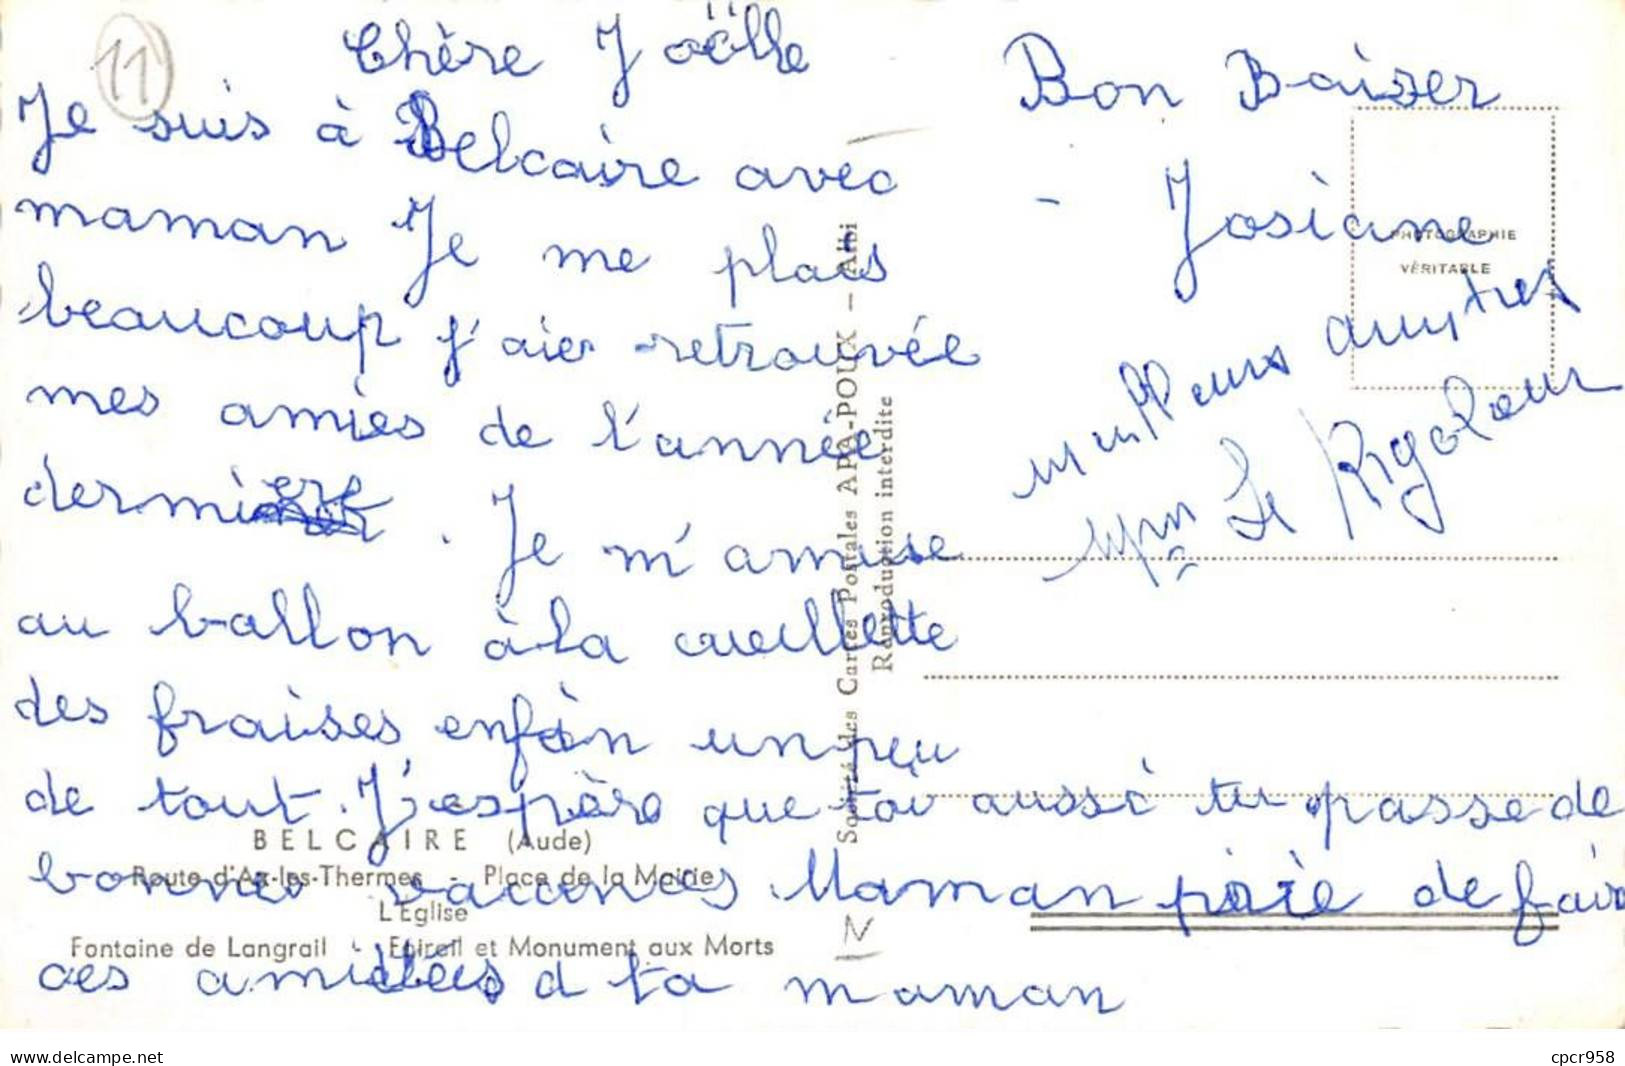 11
Chère Joëlle
Je suis à Belcaire avec
maman Je me plais
beaucoup j'aier retrouvée
mes amies de l'année
dernière . Je m'amuse
au ballon à la cueillette
des fraises enfin un peu
de tout. J'espère que toi aussi tu passe de
bonnes vacances Maman prie de faire
ces amitiées d ta maman
Bon Baiser
- Josiane
meilleurs
Le Rigoleur
PHOTOGRAPHIE
VÉRITABLE
Société des Cartes Postales APA-POUX - Albi
Reproduction interdite
BELCAIRE (Aude)
Route d'Ax-les-Thermes - Place de la Mairie
L'Eglise
Fontaine de Langrail - et Monument aux Morts
N
www.delcampe.net
cpcr958